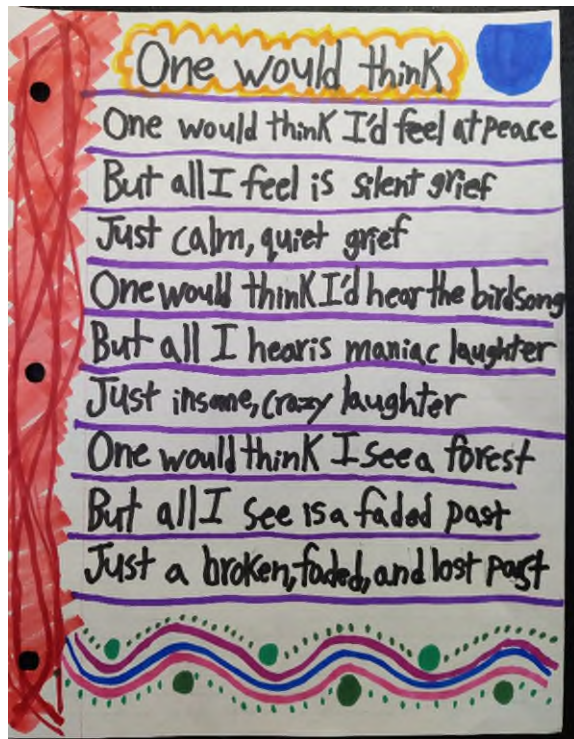 One would think
One would think I'd feel at peace
But all I feel is silent grief
Just calm, quiet grief
One would think I'd hear the birdsong
But all I hear is maniac laughter
Just insane, crazy laughter
One would think I see a forest
But all I see is a faded past
Just a broken, faded, and lost past